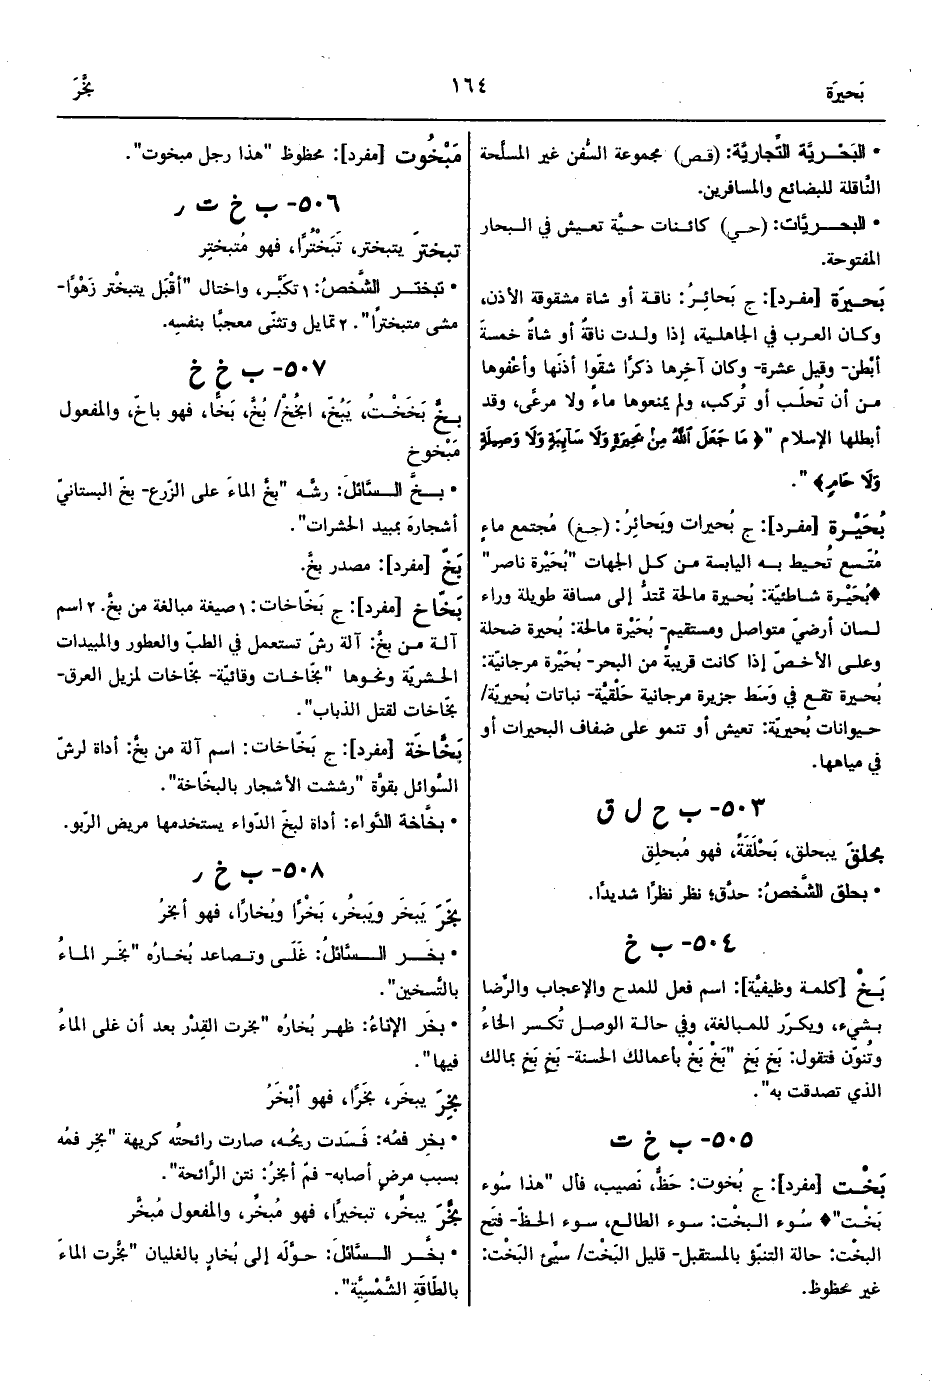 بَحيرَة
١٦٤
بخَّرَ
• البَحْـريَّة التِّجاريَّة: (قـص) مجموعة السُّفن غير المسلّحة
النّاقلة للبضائع والمسافرين.
• البحــريَّات: (حـي) كائـنات حـيَّة تعـيش في الـبحار
المفتوحة.
بَحـيرَة [مفرد]: ج بَحائِـرُ: ناقـة أو شاة مشقوقة الأذن،
وكـان العـرب في الجاهلـية، إذا ولـدت ناقةٌ أو شاةٌ خمسةَ
أبْطن- وقيل عشرة- وكان آخـِرها ذكرًا شقّوا أذنَها وأعْفوها
مـن أن تُحلَـب أو تُركب، ولم يمنعوها ماءً ولا مرعًى، وقد
أبطلـها الإسلام "﴿ مَا جَعَلَ ٱللَّهُ مِنۢ بَحِيرَةٍ وَلَا سَآئِبَةٍ وَلَا وَصِيلَةٍ
وَلَا حَامٍ﴾ ".
بُحَيْـرة [مفـرد]: ج بُحيرات وبَحائرُ: (جـغ) مُجتمع ماءٍ
مُتّـسع تُحـيط بـه اليابسة مـن كـل الجهات "بُحَيْرة ناصر"
♦بُحَيْـرة شـاطئيّة: بُحـيرة مالحة تمتدُّ إلى مسافة طويلة وراء
لسان أرضيّ متواصل ومستقيم- بُحَيْرة مالحة: بُحيرة ضحلة
وعلـى الأخـصّ إذا كانت قريبةً من البحر- بُحَيْرة مرجانيّة:
بُحيرة تقـع في وَسَط جزيرة مرجانية حَلْقيَّة- نباتات بُحيريّة/
حـيوانات بُحيريّة: تعيش أو تنمو على ضفاف البحيرات أو
في مياهها.
٥٠٣- ب ح ل ق
بحلقَ يبحلق، بَحْلَقَةً، فهو مُبحلِق
• بحلق الشَّخصُ: حدّق؛ نظر نظرًا شديدًا.
٥٠٤- ب خ
بَـخْ [كلمـة وظيفيَّة]: اسم فعل للمدح والإعجاب والرِّضا
بـشيء، ويكـرّر للمـبالغة، وفي حالـة الوصل تُكـسر الخاءُ
وتُنوّن فتقول: بَخٍ بَخٍ "بَخْ بَخْ بأعمالك الحسنة- بَخٍ بَخٍ بمالك
الذي تصدقت به".
٥٠٥- ب خ ت
بَخْـت [مفرد]: ج بُخوت: حَظٌّ، نَصيب، فأل "هذا سُوء
بَخْـت"♦ سُـوء الـبخْت: سـوء الطالـع، سـوء الحـظّ- فتَح
البخْت: حالة التنبّؤ بالمستقبل- قليل البَخْت/ سيِّئ البَخْت:
غير محظوظ.
مَبْخُوت [مفرد]: محظوظ "هذا رجل مبخوت".
٥٠٦- ب خ ت ر
تبخترَ يتبختر، تَبَخْتُرًا، فهو مُتبختِر
• تبختـر الشَّخصُ: ١ تكبَّر، واختال "أقْبَل يتبختر زَهْوًا-
مشى متبخترًا". ٢ تمايل وتثنّى معجبًا بنفسِه.
٥٠٧- ب خ خ
بـخَّ بَخَخْـتُ، يَـبُخّ، ابخُخْ/ بُخَّ، بَخًّا، فهو باخّ، والمفعول
مَبْخوخ
• بــخَّ الــسَّائلَ: رشَّـه "بخَّ الماءَ على الزّرع- بخّ البستانيّ
أشجارهَ بمبيد الحشرات".
بَخّ [مفرد]: مصدر بخَّ.
بَخَّاخ [مفرد]: ج بَخّاخات: ١ صيغة مبالغة من بخَّ. ٢ اسم
آلـة مـن بخَّ: آلة رشّ تستعمل في الطبّ والعطور والمبيدات
الحـشريّة ونحـوها "بخّاخـات وقائيّة- بخّاخات لمزيل العرق-
بخّاخات لقتل الذباب".
بَخَّاخَة [مفرد]: ج بَخّاخات: اسم آلة من بخَّ: أداة لرشّ
السَّوائل بقوَّة "رششت الأشجار بالبخّاخة".
• بخَّاخة الدَّواء: أداة لبخّ الدّواء يستخدمها مريض الرّبو.
٥٠٨- ب خ ر
بَخَرَ يَبخَر ويَبخُر، بَخْرًا وبُخارًا، فهو أبخرُ
• بخَــر الــسَّائلُ: غَلَـى وتـصاعد بُخـارُه "بخَـر المـاءُ
بالتَّسخين".
• بخَر الإناءُ: ظهر بُخارُه "بخرت القِدْر بعد أن غلى الماءُ
فيها".
بخِرَ يبخَر، بخَرًا، فهو أبْخَرُ
• بخِر فمُه: فَسَدت ريحُه، صارت رائحتُه كريهة "بخِر فمُه
بسبب مرضٍ أصابه- فمٌ أبخرُ: نتن الرَّائحة".
بخَّرَ يبخِّر، تبخيرًا، فهو مُبخِّر، والمفعول مُبخَّر
• بخَّــر الــسَّائلَ: حـوَّله إلى بُخارٍ بالغليان "بخَّرت الماءَ
بالطّاقَةِ الشَّمْسيَّة".